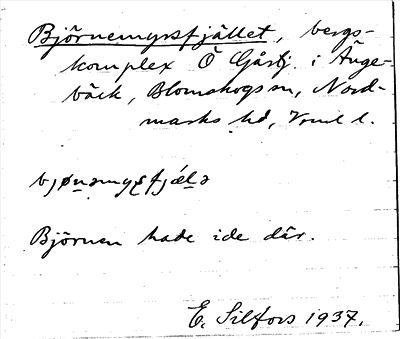 Björnemyrsfjället, bergs-
komplex Ö Gårdsj. i Änge-
bäck, Blomskogs sn, Nord-
marks hd, Vrml l.
bjø̱nəmyʂfjæ̀lə
Björnen hade ide där.
E. Silfors 1937.